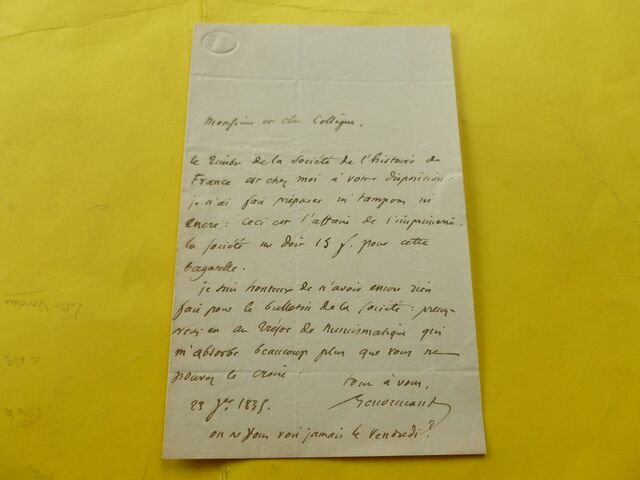 Monsieur et cher Collègue,
le timbre de la Société de l'histoire de
France est chez moi à votre disposition:
je n'ai fait préparer ni tampon ni
encre: ceci est l'affaire de l'imprimerie.
la Société me doit 15 f. pour cette
bagatelle.
je suis honteux de n'avoir encore rien
fait pour le bulletin de la Société: prenez-
vous en au Trésor de Numismatique qui
m'absorbe beaucoup plus que vous ne
pouvez le croire.
tout à vous,
23 1835.
on ne vous voit jamais le Vendredi?